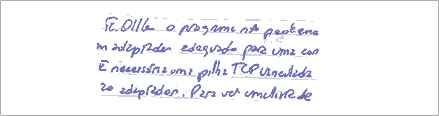 o programa não
um adaptador adequado para uma con
É necessária uma pilha TCP vinculada
ao adaptador. Para ver uma lista de